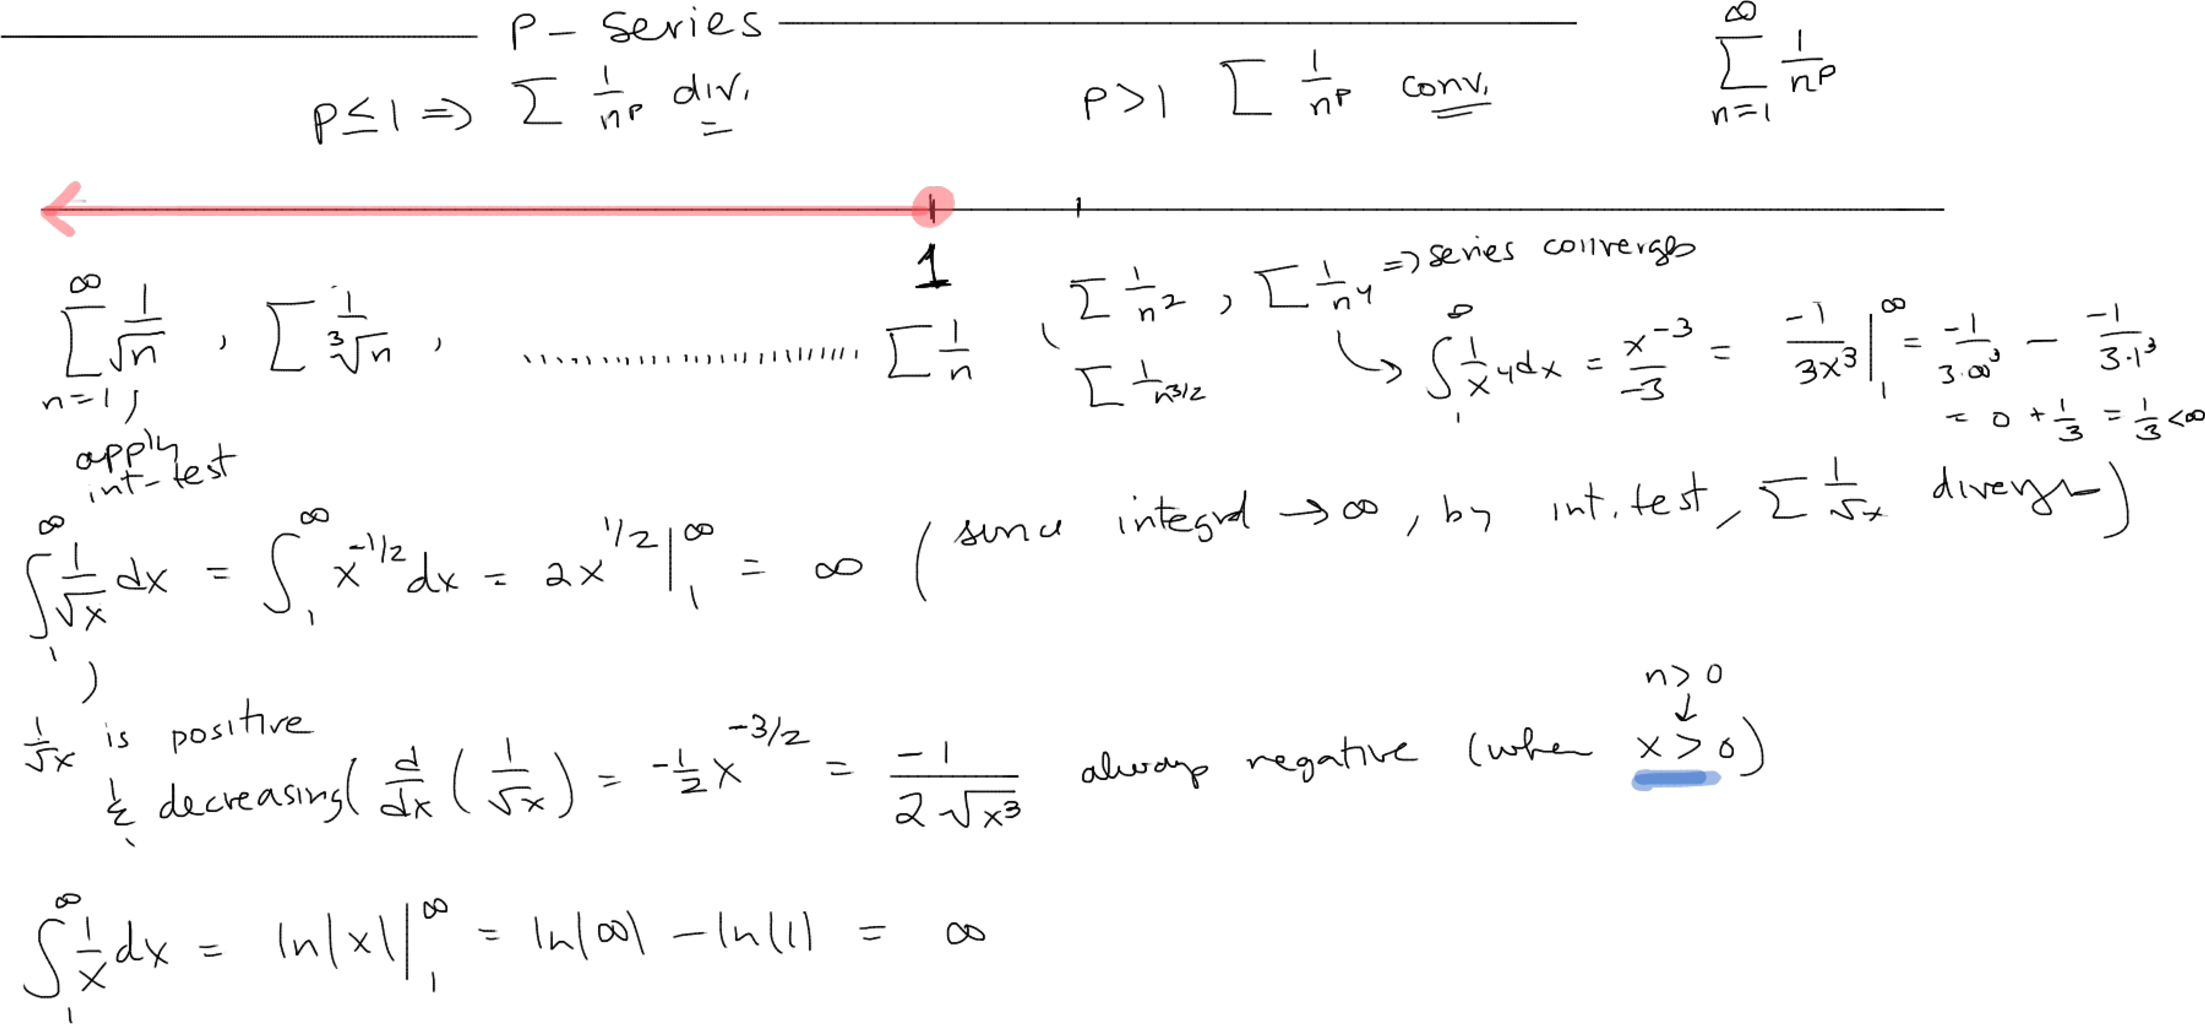 P - series
p ≤ 1 ⇒ ∑ 1/n^p div.
p > 1 ∑ 1/n^p conv.
∑_{n=1}^{∞} 1/n^p
1
∑_{n=1}^{∞} 1/√n , ∑ 1/∛n , .......................... ∑ 1/n , ∑ 1/n^2 , ∑ 1/n^4 ⇒ series converges
∑ 1/n^{3/2}
↳ ∫_1^∞ 1/x^4 dx = x^{-3}/-3 = -1/3x^3 |_1^∞ = -1/3·∞^3 - -1/3·1^3
= 0 + 1/3 = 1/3 < ∞
apply
int-test
∫_1^∞ 1/√x dx = ∫_1^∞ x^{-1/2} dx = 2x^{1/2} |_1^∞ = ∞ (since integral → ∞, by int. test, ∑ 1/√x diverges)
1/√x is positive
& decreasing ( d/dx (1/√x) = -1/2 x^{-3/2} = -1/2√x^3 always negative (when x > 0)
n > 0
↓
∫_1^∞ 1/x dx = ln|x| |_1^∞ = ln|∞| - ln|1| = ∞